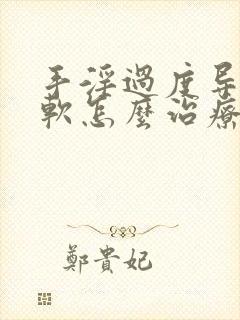 手淫過度导
軟怎麼治療
鄭貴妃